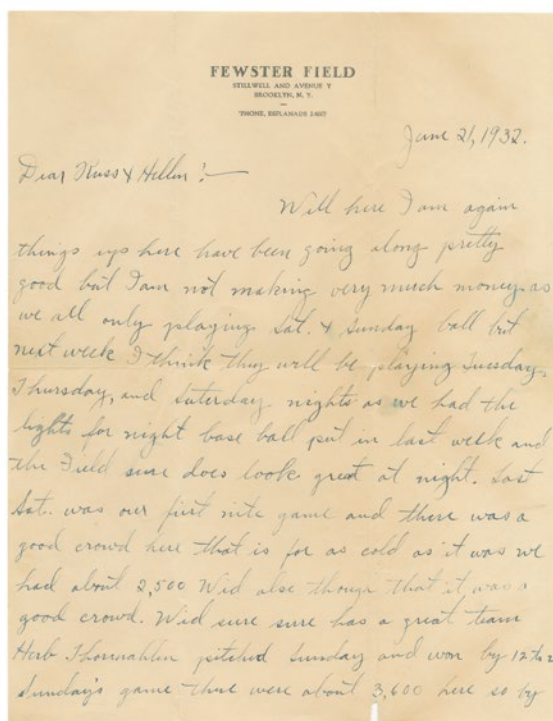 FEWSTER FIELD
STILLWELL AND AVENUE Y
BROOKLYN, N. Y.
'PHONE, ESPLANADE
June 21, 1932.
Dear Russ & Hellen :—
Well here I am again
things up here have been going along pretty
good but I am not making very much money as
we all only playing Sat. & Sunday ball but
next week I think they will be playing Tuesday,
Thursday, and Saterday nights as we had the
lights for night base ball put in last week and
the Field sure does look great at night. Last
Sat. was our first nite game and there was a
good crowd here that is for as cold as it was we
had about 2,500 Wid also though that it was a
good crowd. Wid sure sure has a great team
Herb Thormahlen pitched Sunday and won by 12 to 2
Sunday's game there were about 3,600 here so by